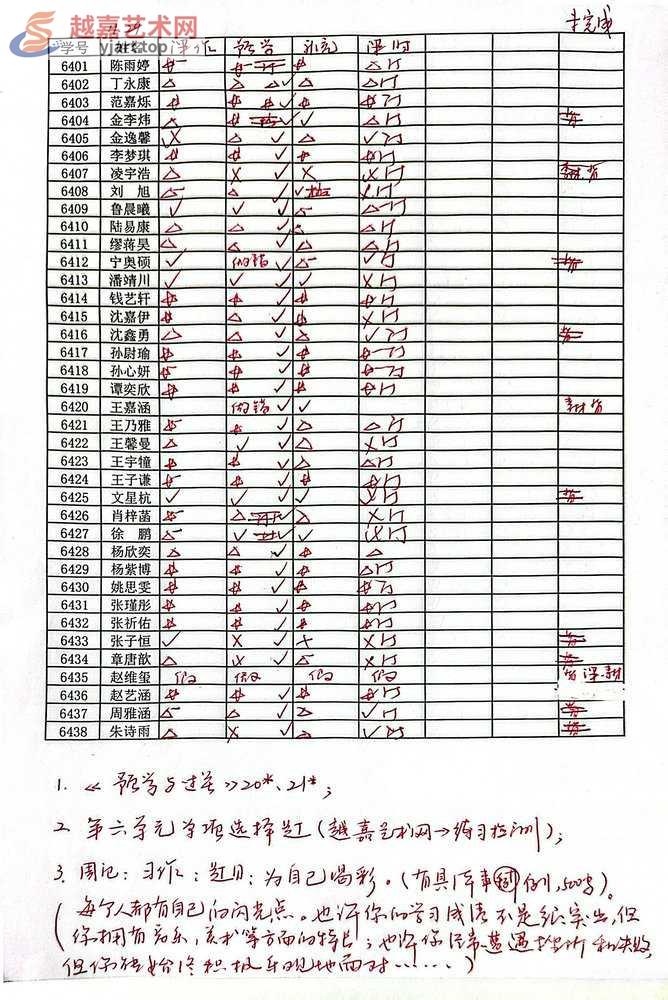 越嘉艺术网
yjart.top
11.29
未完成
学号 姓名 课作 预学 补充 课时
6401 陈雨婷
6402 丁永康
6403 范嘉烁
6404 金李炜
6405 金逸馨
6406 李梦琪
6407 凌宇浩
6408 刘 旭
6409 鲁晨曦
6410 陆易康
6411 缪蒋昊
6412 宁奥硕 做错
6413 潘靖川
6414 钱艺轩
6415 沈嘉伊
6416 沈鑫勇
6417 孙尉瑜
6418 孙心妍
6419 谭奕欣
6420 王嘉涵 做错
6421 王乃雅
6422 王馨曼
6423 王宇犝
6424 王子谦
6425 文星杭
6426 肖梓菡
6427 徐 鹏
6428 杨欣奕
6429 杨紫博
6430 姚思雯
6431 张瑾彤
6432 张祈佑
6433 张子恒
6434 章唐歆
6435 赵维玺 假 假 假 假
6436 赵艺涵
6437 周雅涵
6438 朱诗雨
1. 《预学与过关》20*、21*;
2. 第六单元单项选择题(越嘉艺术网→练习检测);
3. 周记:习作:题目:为自己喝彩。(有具体事例,500字)。
(每个人都有自己的闪光点。也许你的学习成绩不是很突出,但
你拥有音乐,美术等方面的特长;也许你经常遭遇挫折和失败,
但你能始终积极乐观地面对……)